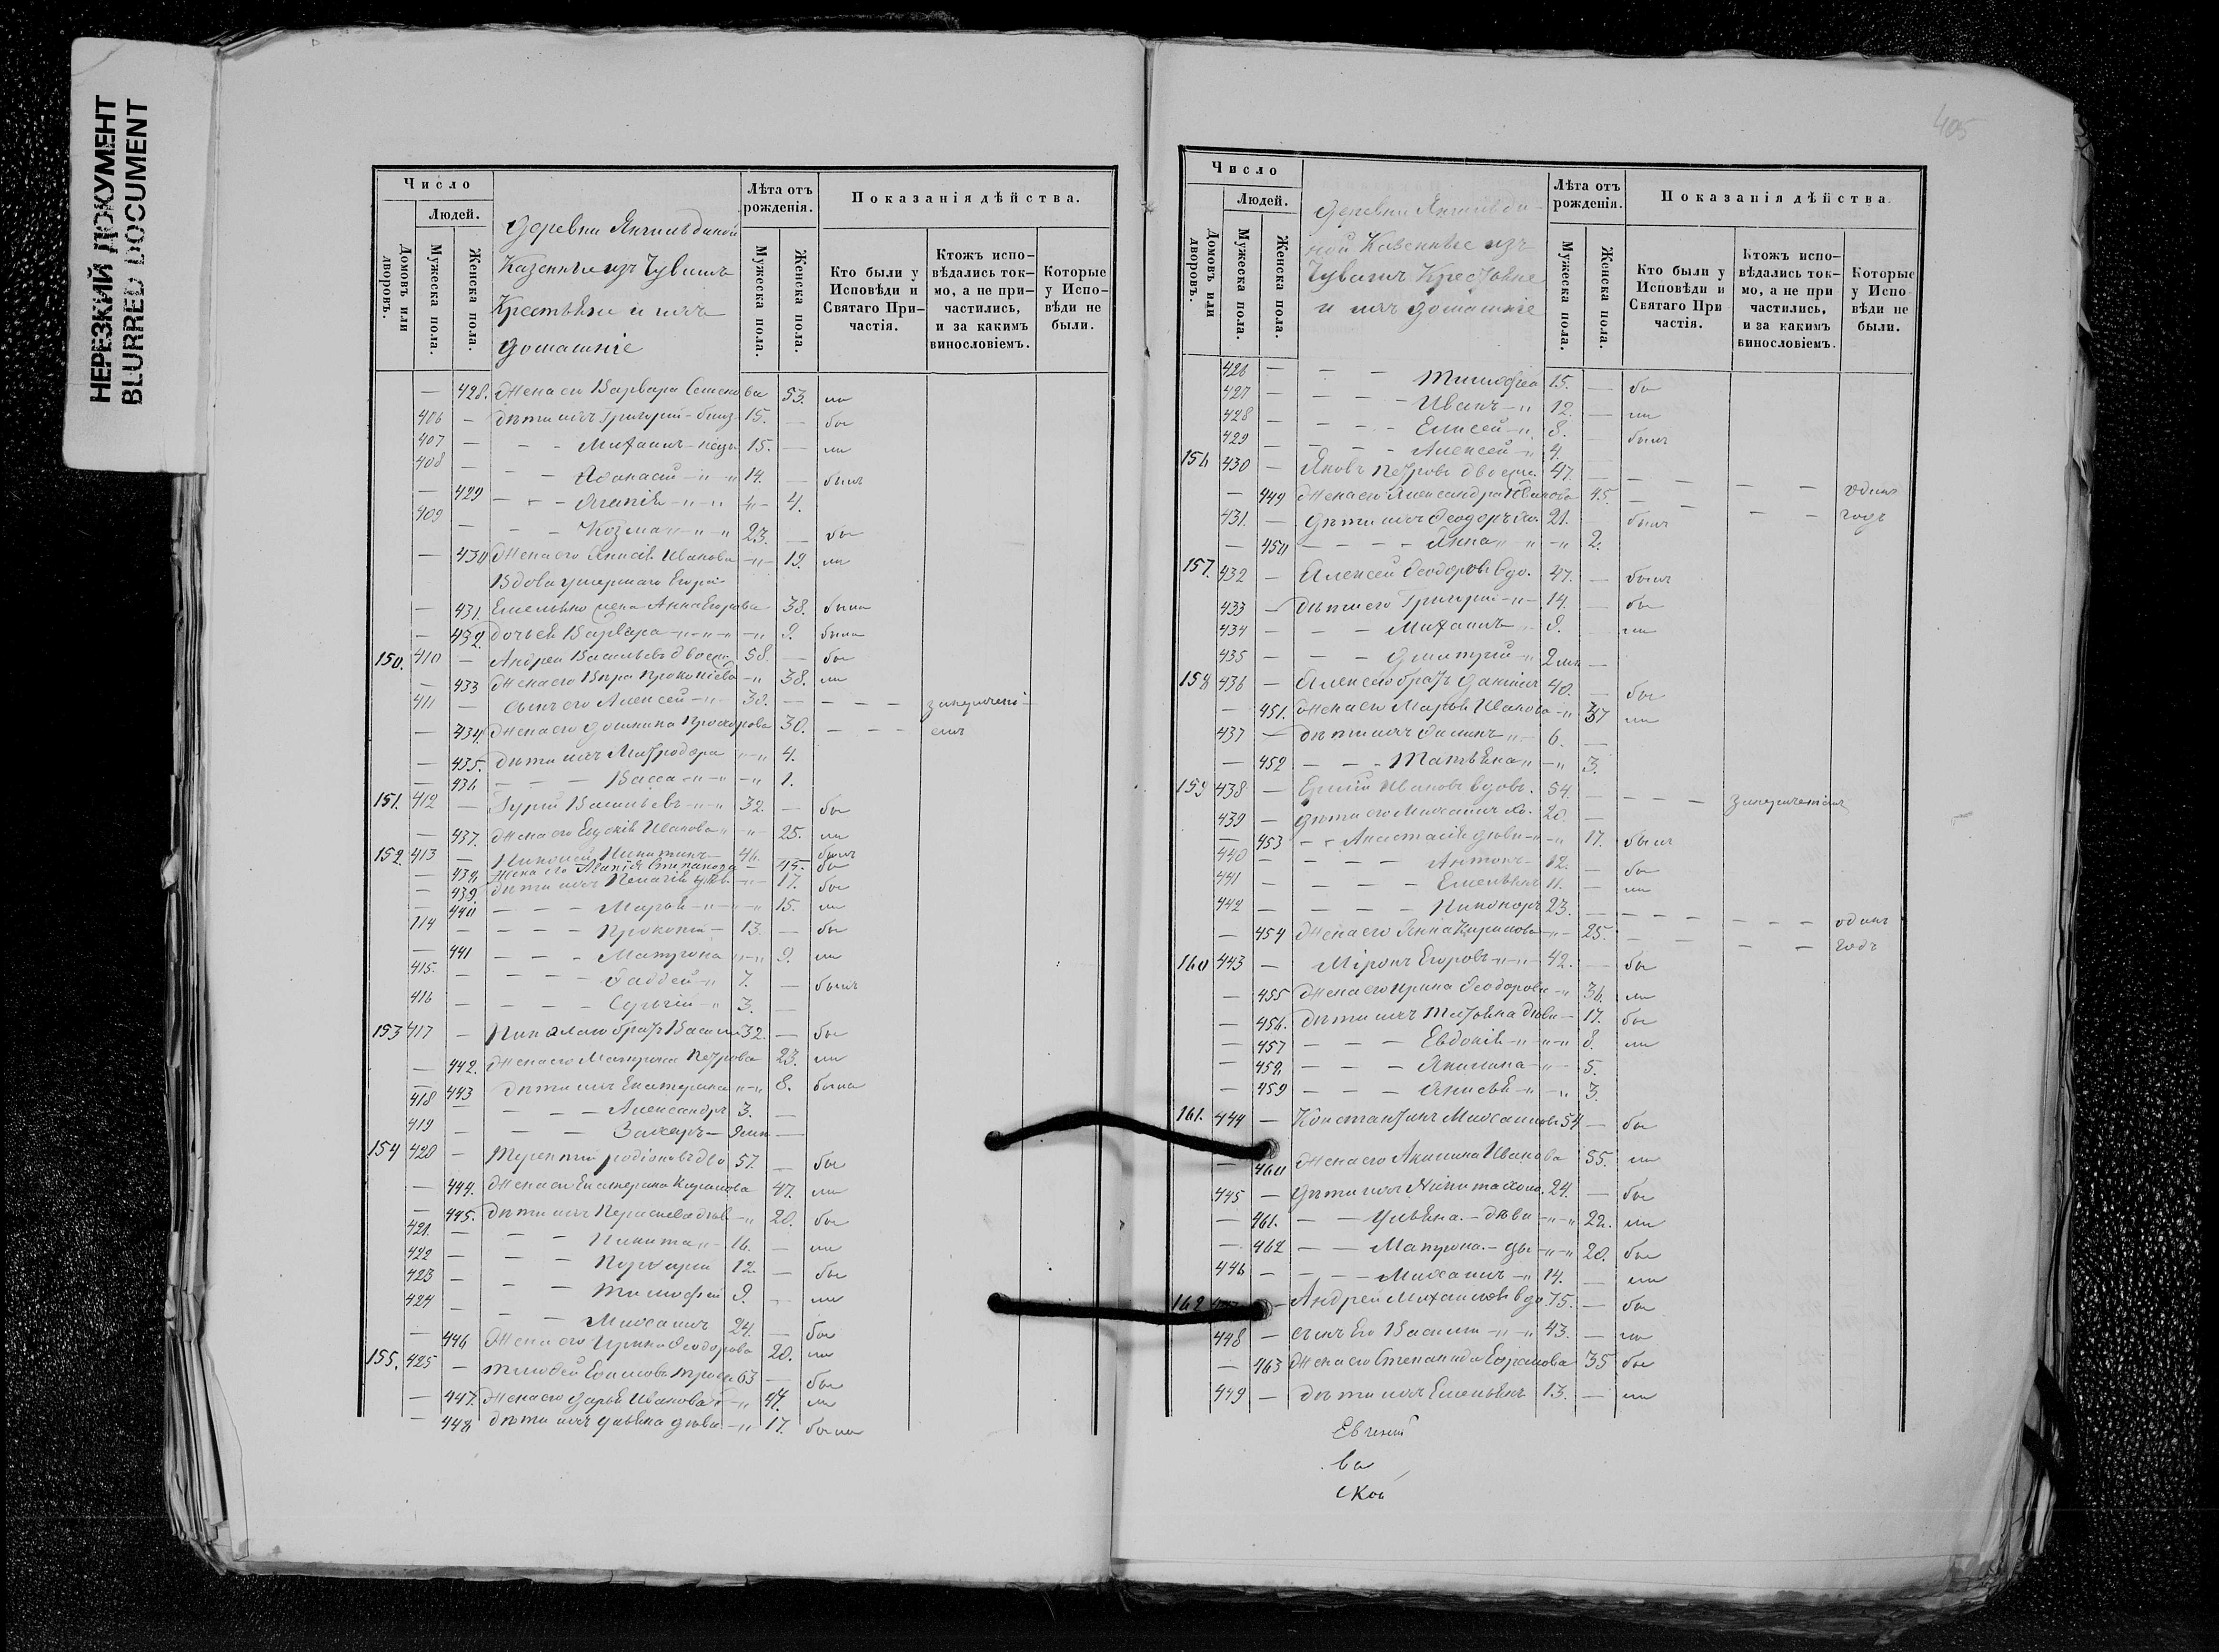 НЕРЕЗКИЙ ДОКУМЕНТ
BLURRED DOCUMENT
Число
Людей.
Домовъ или дворовъ.
Мужеска пола.
Женска пола.
Деревни
Казенные изъ Чувашъ
Крестьяне и ихъ
домашніе
Лѣта отъ рожденія.
Мужеска пола.
Женска пола.
Показанія дѣйства.
Кто были у Исповѣди и Святаго При-частія.
Ктожъ испо-вѣдались ток-мо, а не при-частились, и за какимъ винословіемъ.
Которые у Испо-вѣди не были.
— 428. Жена его Варвара Семенова 53. ли
406 — дѣти ихъ Григорій 15. — бы
407 — — Михаилъ 15. — ли
408 — — Афанасій 14. — былъ
— 429 — — 4.
409 — — Козма 23. — бы
— 430 Жена его Анисія Иванова 19. ли
Вдова умершаго Егора
— 431. Емельянова жена Анна Егорова 38. была
— 432. дочь ея Варвара 9. была
150. 410 — Андрей Васильевъ двоеж. 58. — бы
— 433 Жена его Вѣра Прокопіева 38. ли
411 — сынъ его Алексей 30. — — —
— 434. Жена его Домнина Прохорова 30. — — —
— 435. дѣти ихъ Митродора 4.
— 436 — — Васса 1.
151. 412 — Гурій Васильевъ 32. — бы
— 437. Жена его Евдокія Иванова 25. ли
152. 413 — Николай Никитинъ 46. былъ
— 438. Жена его Степанова 45. бы
— 439. дѣти ихъ Пелагія дѣв. 17. бы
— 440 — — Марья 15. ли
414 — — Прокопій 13. — бы
— 441 — — Матрона 9. ли
415. — — Фаддей 7. — былъ
416 — — Сергій 3. —
153 417 — Николаю братъ Василій 32. — бы
— 442. Жена его Матрона Петрова 23. ли
— 443 дѣти ихъ Екатерина 8. была
418 — — Александръ 3. —
419 — — Захаръ — 9 мѣс —
154 420 — Терентій Родіоновъ дво 57. — бы
— 444. Жена его Екатерина Кирилова 47. ли
— 445. дѣти ихъ Параскева дѣв. 20. бы
421. — — Никита 16. — ли
422 — — Порфирій 12. — бы
423 — — Тимофей 9. — ли
424 — — Михаилъ 24. — бы
— 446 Жена его Ирина Феодорова 20. ли
155. 425 — Тимофей Ефимовъ 63 — бы
— 447. Жена его Дарья Иванова 47. ли
— 448 дѣти ихъ Ульяна дѣва 17. была
405
Число
Людей.
Домовъ или дворовъ.
Мужеска пола.
Женска пола.
Деревни
ной Казенные изъ
Чувашъ Крестьяне
и ихъ домашніе
Лѣта отъ рожденія.
Мужеска пола.
Женска пола.
Показанія дѣйства.
Кто были у Исповѣди и Святаго При частія.
Ктожъ испо-вѣдались ток-мо, а не при частились, и за какимъ винословіемъ.
Которые у Испо вѣди не были.
426 — — — Тимофей 15. — бы
427 — — — Иванъ 12. — ли
428 — — — Елисей 8. — былъ
429 — — — Алексей 4. —
156 430 — Яковъ Петровъ двоеж. 47. — — — —
— 449 Жена его Александра Иванова 45. — — — одинъ
431. — дѣти ихъ Феодоръ 21. — былъ — — годъ
— 450 — — — Анна 2.
157. 432 — Алексей Феодоровъ вдо. 47. — былъ
433 — дѣти его Григорій 14. — бы
434 — — — Михаилъ 9. — ли
435 — — — Дмитрій 2 —
158 436 — Алексею братъ Даніилъ 40. — бы
— 451. Жена его Марья Иванова 37 ли
437 — дѣти ихъ 6. —
— 452 — — Татьяна 3.
159 438 — Иванов вдовъ. 54. — — —
439 — дѣти его Михаилъ хо. 20. —
— 453 — — Анастасія дѣва 17. былъ
440 — — — Антонъ 12. — бы
441 — — — Емельянъ 11. — ли
442 — — — Никоноръ 23. — — — — одинъ
— 454 Жена его Анна Кирилова 25. — — — годъ
160 443 — Миронъ Егоровъ 42. — бы
— 455 Жена его Ирина Феодорова 36. ли
— 456. дѣти ихъ Татьяна дѣва 17. бы
— 457 — — — Евдокія 8. ли
— 458 — — — Акилина 5.
— 459 — — — Анисья 3.
161. 444 — Константинъ Михаиловъ 54 — бы
— 460 Жена его Акилина Иванова 55. ли
445 — дѣти ихъ Никита холо. 24. — бы
— 461. — — Ульяна. — дѣва 22. ли
— 462 — — Матрона. — дѣ 20. бы
446 — — — Михаилъ 14. — ли
162 — Андрей Михаиловъ вдо 75. — бы
448 — сынъ Его Василій 43. — ли
— 463 Жена его Степанида Ефимова 35 бы
449 — дѣти ихъ Емельянъ 13. — ли
Евгений
ва
ской